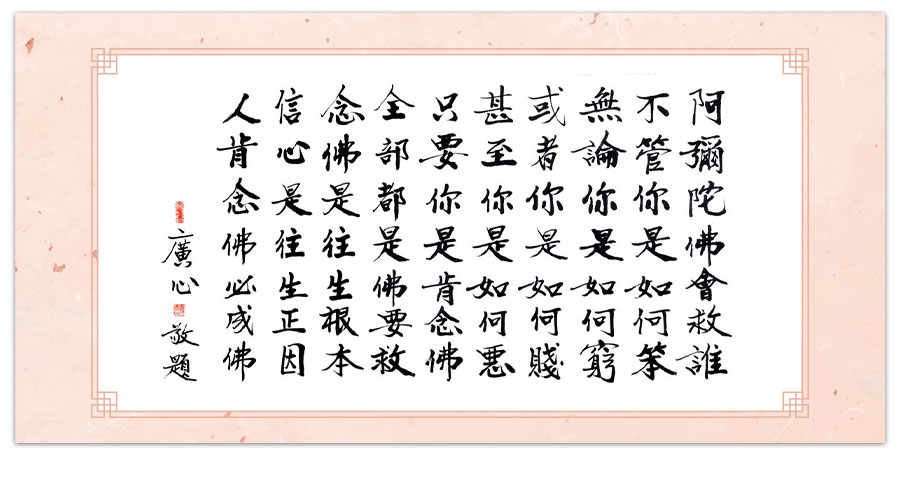 阿彌陀佛會救誰
不管你是如何笨
無論你是如何窮
或者你是如何賤
甚至你是如何惡
只要你是肯念佛
全部都是佛要救
念佛是往生根本
信心是往生正因
人肯念佛必成佛
廣心敬題